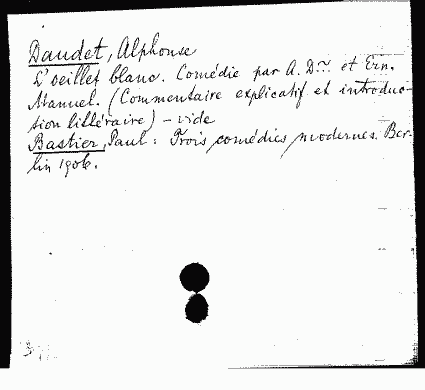 Daudet, Alphonse
L'oeillet blanc. Comédie par A. D... et Ern.
Manuel. (Commentaire explicatif et introduc-
tion littéraire) - vide
Bastier, Paul: Trois comédies modernes. Ber-
lin 1906.